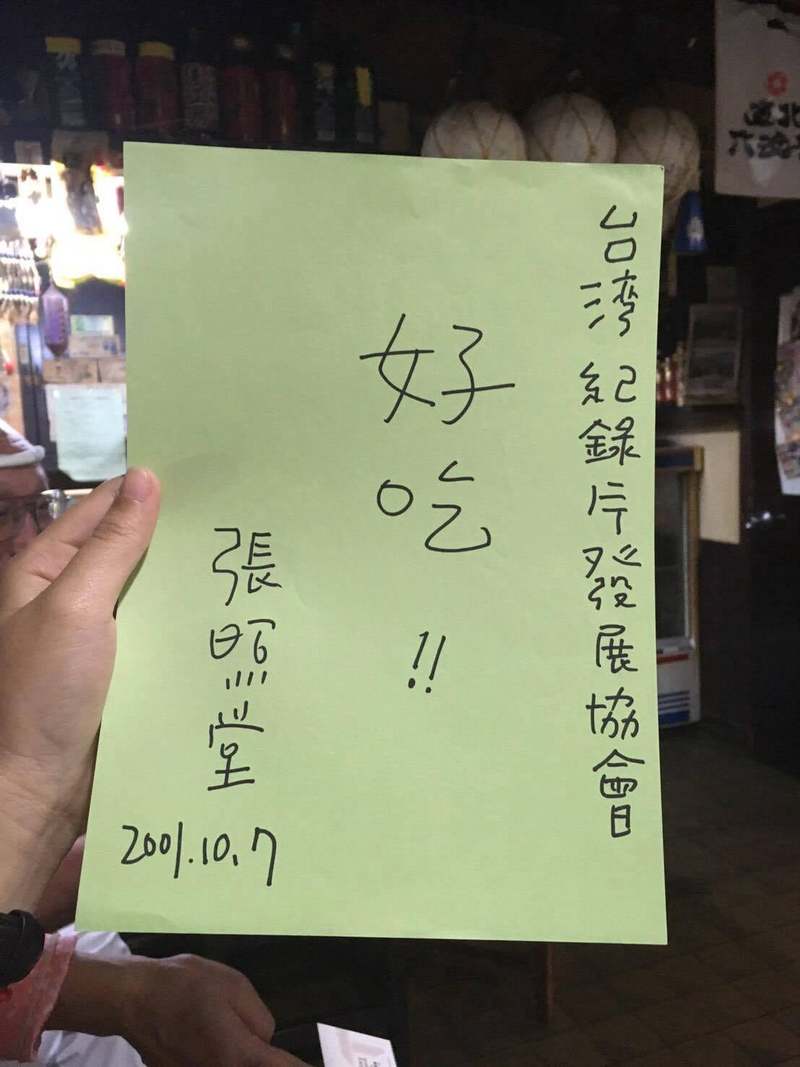 台湾紀錄片發展協會
好吃!!
張照堂
2001.10.7
道北